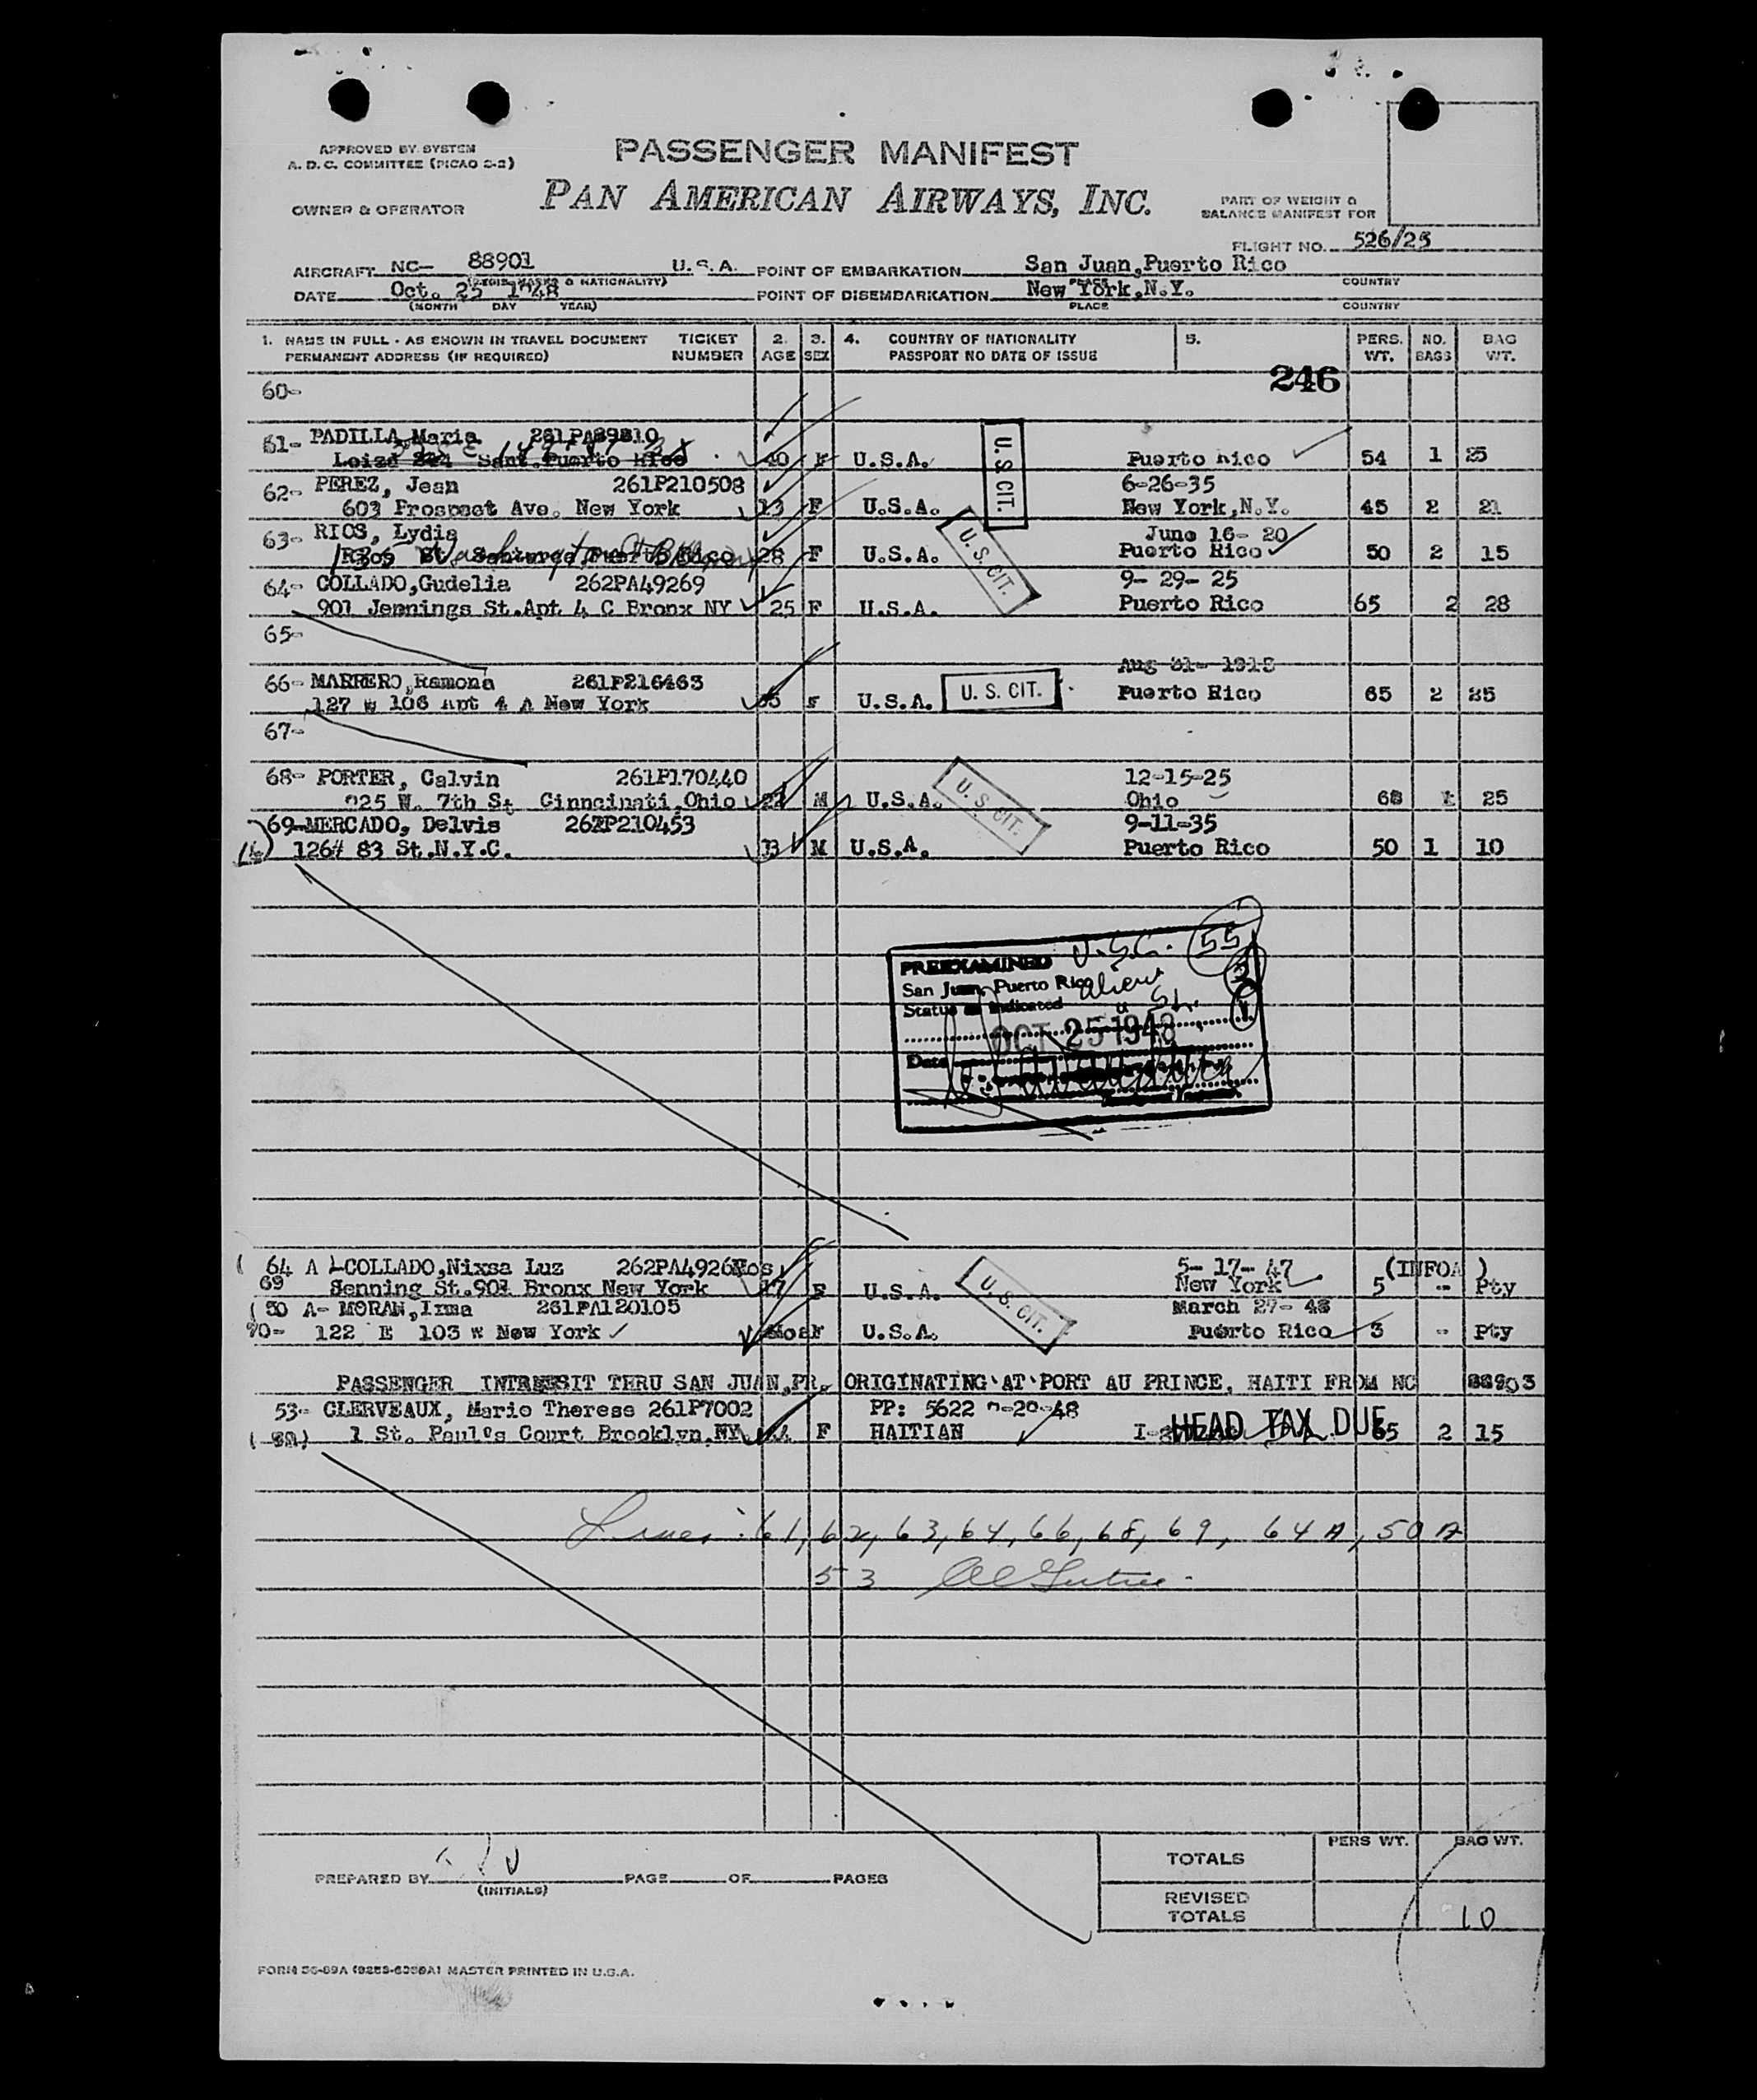 APPROVED BY SYSTEM
A. D. C. COMMITTEE (PICAO 2-2)
PASSENGER MANIFEST
PAN AMERICAN AIRWAYS, INC.
OWNER & OPERATOR
PART OF WEIGHT &
BALANCE MANIFEST FOR
FLIGHT NO. 526/25
AIRCRAFT NC- 88901 U.S.A. POINT OF EMBARKATION San Juan,Puerto Rico
& NATIONALITY) PLACE COUNTRY
DATE Oct. 25 1948 POINT OF DISEMBARKATION New York,N.Y.
(MONTH DAY YEAR) PLACE COUNTRY
1. NAME IN FULL - AS SHOWN IN TRAVEL DOCUMENT TICKET 2. 3. 4. COUNTRY OF NATIONALITY 5. PERS. NO. BAG
PERMANENT ADDRESS (IF REQUIRED) NUMBER AGE SEX PASSPORT NO DATE OF ISSUE WT. BAGS WT.
246
60-
61- PADILLA,Maria 261PA89810
Loiza Sant.Puerto Rico 40 F U.S.A. Puerto Rico 54 1 25
U.S. CIT.
62- PEREZ, Jean 261P210508 6-26-35
603 Prospect Ave. New York 13 F U.S.A. New York,N.Y. 45 2 21
63- RIOS, Lydia June 16- 20
Puerto Rico 28 F U.S.A. Puerto Rico 50 2 15
U.S. CIT.
64- COLLADO,Gudelia 262PA49269 9- 29- 25
901 Jennings St.Apt 4 C Bronx NY 25 F U.S.A. Puerto Rico 65 2 28
65-
Aug 31- 1918
66- MARRERO,Ramona 261P216463
127 W 106 Apt 4 A New York F U.S.A. U. S. CIT. Puerto Rico 65 2 25
67-
68- PORTER, Calvin 261P170440 12-15-25
W. 7th St Cinncinati,Ohio 22 M U.S.A. Ohio 68 1 25
U. S. CIT.
69-MERCADO, Delvis 262P210453 9-11-35
126# 83 St.N.Y.C. 13 M U.S.A. Puerto Rico 50 1 10
PREEXAMINED U.S.C. 55
San Juan, Puerto Rico alien
Status as indicated
OCT 25 1948
Date
( 64 A )-COLLADO,Nixsa Luz 262PA49269 mos 5- 17- 47 (INFOA )
69 Jenning St.901 Bronx New York 17 F U.S.A. New York 5 -- Pty
U. S. CIT.
( 50 A- MORAN,Irma 261PA120105 March 27- 48
70- 122 E 103 W New York F U.S.A. Puerto Rico 3 -- Pty
PASSENGER INTRESSIT THRU SAN JUAN,PR. ORIGINATING AT PORT AU PRINCE, HAITI FROM NC 88903
53- CLERVEAUX, Marie Therese 261P7002 PP: 5622
1 St. Paul's Court Brooklyn,NY F HAITIAN HEAD TAX DUE 65 2 15
Lines: 61, 62, 63, 64, 66, 68, 69, 64A, 50A
53
TOTALS PERS WT. BAG WT.
PREPARED BY PAGE OF PAGES
(INITIALS)
REVISED
TOTALS 10
FORM 36-89A MASTER PRINTED IN U.S.A.